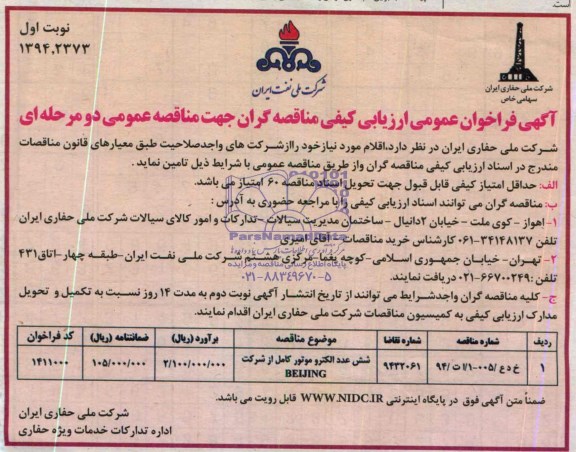 نوبت اول
۱۳۹۴,۲۳۷۳
شرکت ملی نفت ایران
شرکت ملی حفاری ایران
سهامی خاص
آگهی فراخوان عمومی ارزیابی کیفی مناقصه گران جهت مناقصه عمومی دو مرحله ای
شرکت ملی حفاری ایران در نظر دارد،اقلام مورد نیازخود راازشرکت های واجدصلاحیت طبق معیارهای قانون مناقصات
مندرج در اسناد ارزیابی کیفی مناقصه گران واز طریق مناقصه عمومی با شرایط ذیل تامین نماید .
الف: حداقل امتیاز کیفی قابل قبول جهت تحویل اسناد مناقصه ۶۰ امتیاز می باشد.
ب: مناقصه گران می توانند اسناد ارزیابی کیفی را با مراجعه حضوری به آدرس :
۱- اهواز - کوی ملت - خیابان ۲دانیال - ساختمان مدیریت سیالات - تدارکات و امور کالای سیالات شرکت ملی حفاری ایران
تلفن ۳۴۱۴۸۱۳۷-۰۶۱ کارشناس خرید مناقصات - آقای امیری
۲- تهران- خیابان جمهوری اسلامی-کوچه یغما-مرکزی هشتم شرکت ملی نفت ایران-طبقه چهار-اتاق۴۳۱
تلفن :۶۶۷۰۰۲۴۹-۰۲۱ دریافت نمایند.
ج- کلیه مناقصه گران واجدشرایط می توانند از تاریخ انتشار آگهی نوبت دوم به مدت ۱۴ روز نسبت به تکمیل و تحویل
مدارک ارزیابی کیفی به کمیسیون مناقصات شرکت ملی حفاری ایران اقدام نمایند.
ParsNamadData
پایگاه اطلاع رسانی مناقصه و مزایده
۰۲۱-۸۸۳۴۹۶۷۰-۵
ردیف شماره مناقصه شماره تقاضا موضوع مناقصه برآورد (ریال) ضمانتنامه (ریال) کد فراخوان
۱ خ دع /۰۰۵-۱/ا ت /۹۴ ۹۴۳۲۰۶۱ شش عدد الکترو موتور کامل از شرکت BEIJING ۲/۱۰۰/۰۰۰/۰۰۰ ۱۰۵/۰۰۰/۰۰۰ ۱۴۱۱۰۰۰
ضمناً متن آگهی فوق در پایگاه اینترنتی WWW.NIDC.IR قابل رویت می باشد.
شرکت ملی حفاری ایران
اداره تدارکات خدمات ویژه حفاری